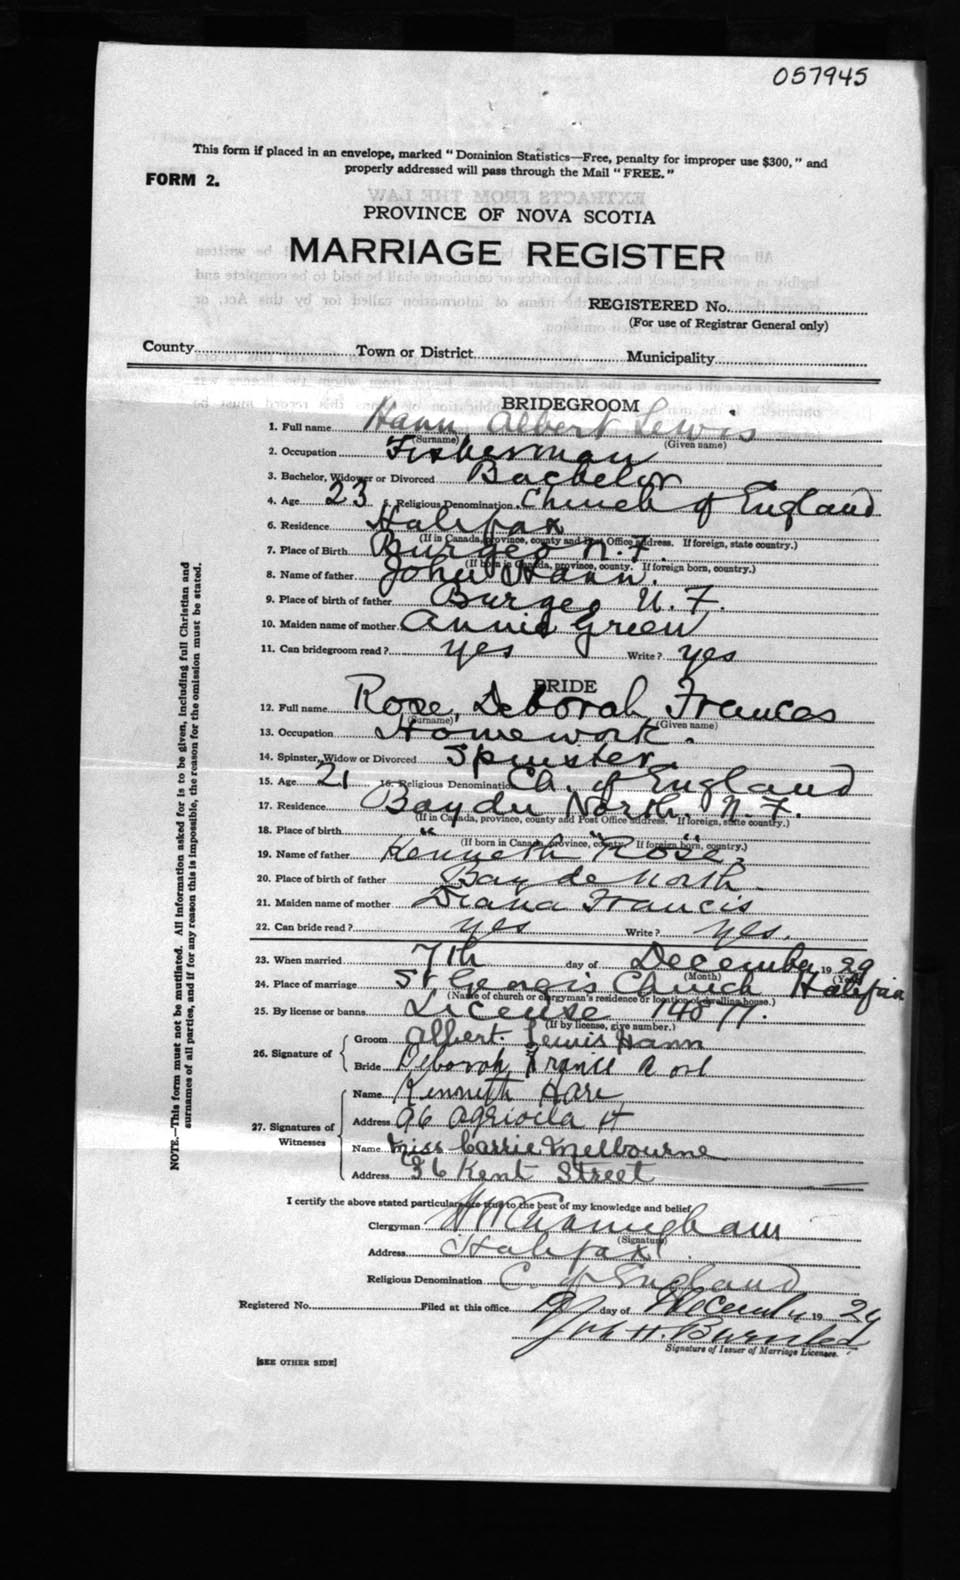 057945
This form if placed in an envelope, marked "Dominion Statistics—Free, penalty for improper use $300," and
properly addressed will pass through the Mail "FREE."
FORM 2.
PROVINCE OF NOVA SCOTIA
MARRIAGE REGISTER
REGISTERED No.
(For use of Registrar General only)
County Town or District Municipality
BRIDEGROOM
1. Full name Hann Albert Lewis
(Surname) (Given name)
2. Occupation Fisherman
3. Bachelor, Widower or Divorced Bachelor
4. Age 23 5. Religious Denomination Church of England
6. Residence Halifax
(If in Canada, province, county and Post Office address. If foreign, state country.)
7. Place of Birth Burgeo N. F.
(If born in Canada, province, county. If foreign born, country.)
8. Name of father John Hann.
9. Place of birth of father Burgeo N. F.
10. Maiden name of mother Annie Green
11. Can bridegroom read? yes Write? yes
BRIDE
12. Full name Rose, Deborah Frances
(Surname) (Given name)
13. Occupation Homework.
14. Spinster, Widow or Divorced Spinster.
15. Age 21 16. Religious Denomination Ch. of England
17. Residence Bay du North. N. F.
(If in Canada, province, county and Post Office address. If foreign, state country.)
18. Place of birth " "
(If born in Canada, province, county. If foreign born, country.)
19. Name of father Kenneth Rose.
20. Place of birth of father Bay de North
21. Maiden name of mother Diana Francis
22. Can bride read? yes Write? yes.
23. When married 7th day of December 1929
(Month) (Year)
24. Place of marriage St George's Church Halifax
(Name of church or clergyman's residence or location of dwelling house.)
25. By license or banns License 14877.
(If by license, give number.)
26. Signature of Groom Albert Lewis Hann
Bride Deborah
27. Signatures of Witnesses Name Kenneth Hare
Address 96 Agricola St
Name Miss Carrie Melbourne
Address 36 Kent Street
I certify the above stated particulars are true to the best of my knowledge and belief.
Clergyman Cunningham
(Signature)
Address Halifax
Religious Denomination C. of England
Registered No. Filed at this office 9 day of December 1929
Signature of Issuer of Marriage Licenses.
[SEE OTHER SIDE]
NOTE.—This form must not be mutilated. All information asked for is to be given, including full Christian and
surnames of all parties, and if for any reason this is impossible, the reason for the omission must be stated.